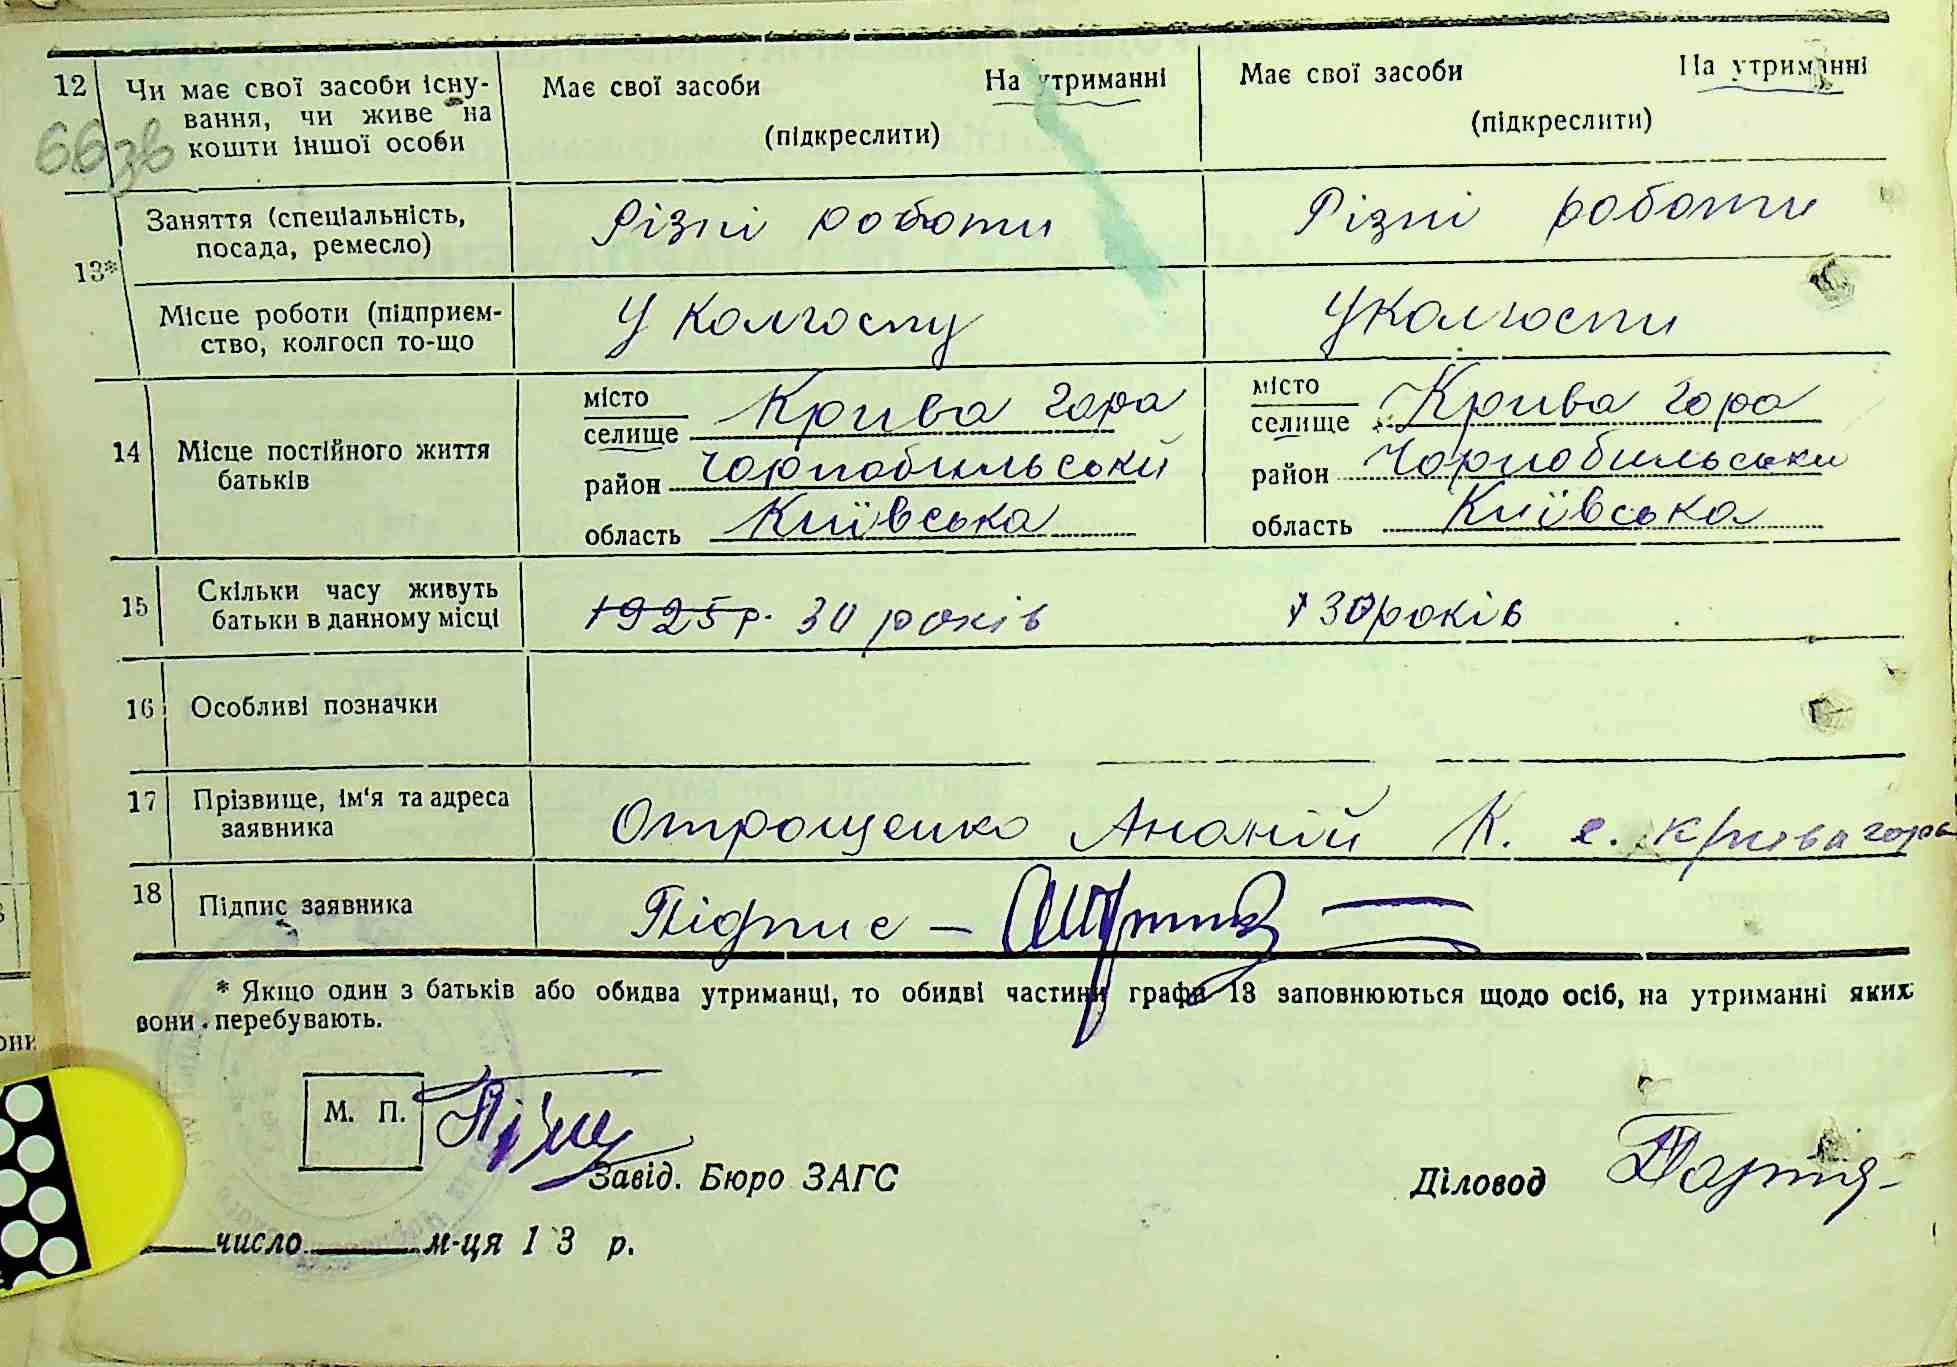 12 Чи має свої засоби існу-
вання, чи живе на
кошти іншої особи
Має свої засоби На утриманні
(підкреслити)
Має свої засоби На утриманні
(підкреслити)
66зв
13*
Заняття (спеціальність,
посада, ремесло)
Різні роботи
Різні роботи
Місце роботи (підприєм-
ство, колгосп то-що
У Колгоспу
У Колгоспи
14 Місце постійного життя
батьків
місто
селище Крива гора
район Чорнобильськи
область Київська
місто
селище Крива гора
район Чорнобильськи
область Київська
15 Скільки часу живуть
батьки в данному місці
1925 р. 30 років
30 років
16 Особливі позначки
17 Прізвище, ім'я та адреса
заявника
Отрощенко Ананій К. с. Крива гора
18 Підпис заявника
Підпис –
* Якщо один з батьків або обидва утриманці, то обидві частини графи 13 заповнюються щодо осіб, на утриманні яких
вони перебувають.
М. П.
Завід. Бюро ЗАГС
Діловод
число м-ця 1 3 р.